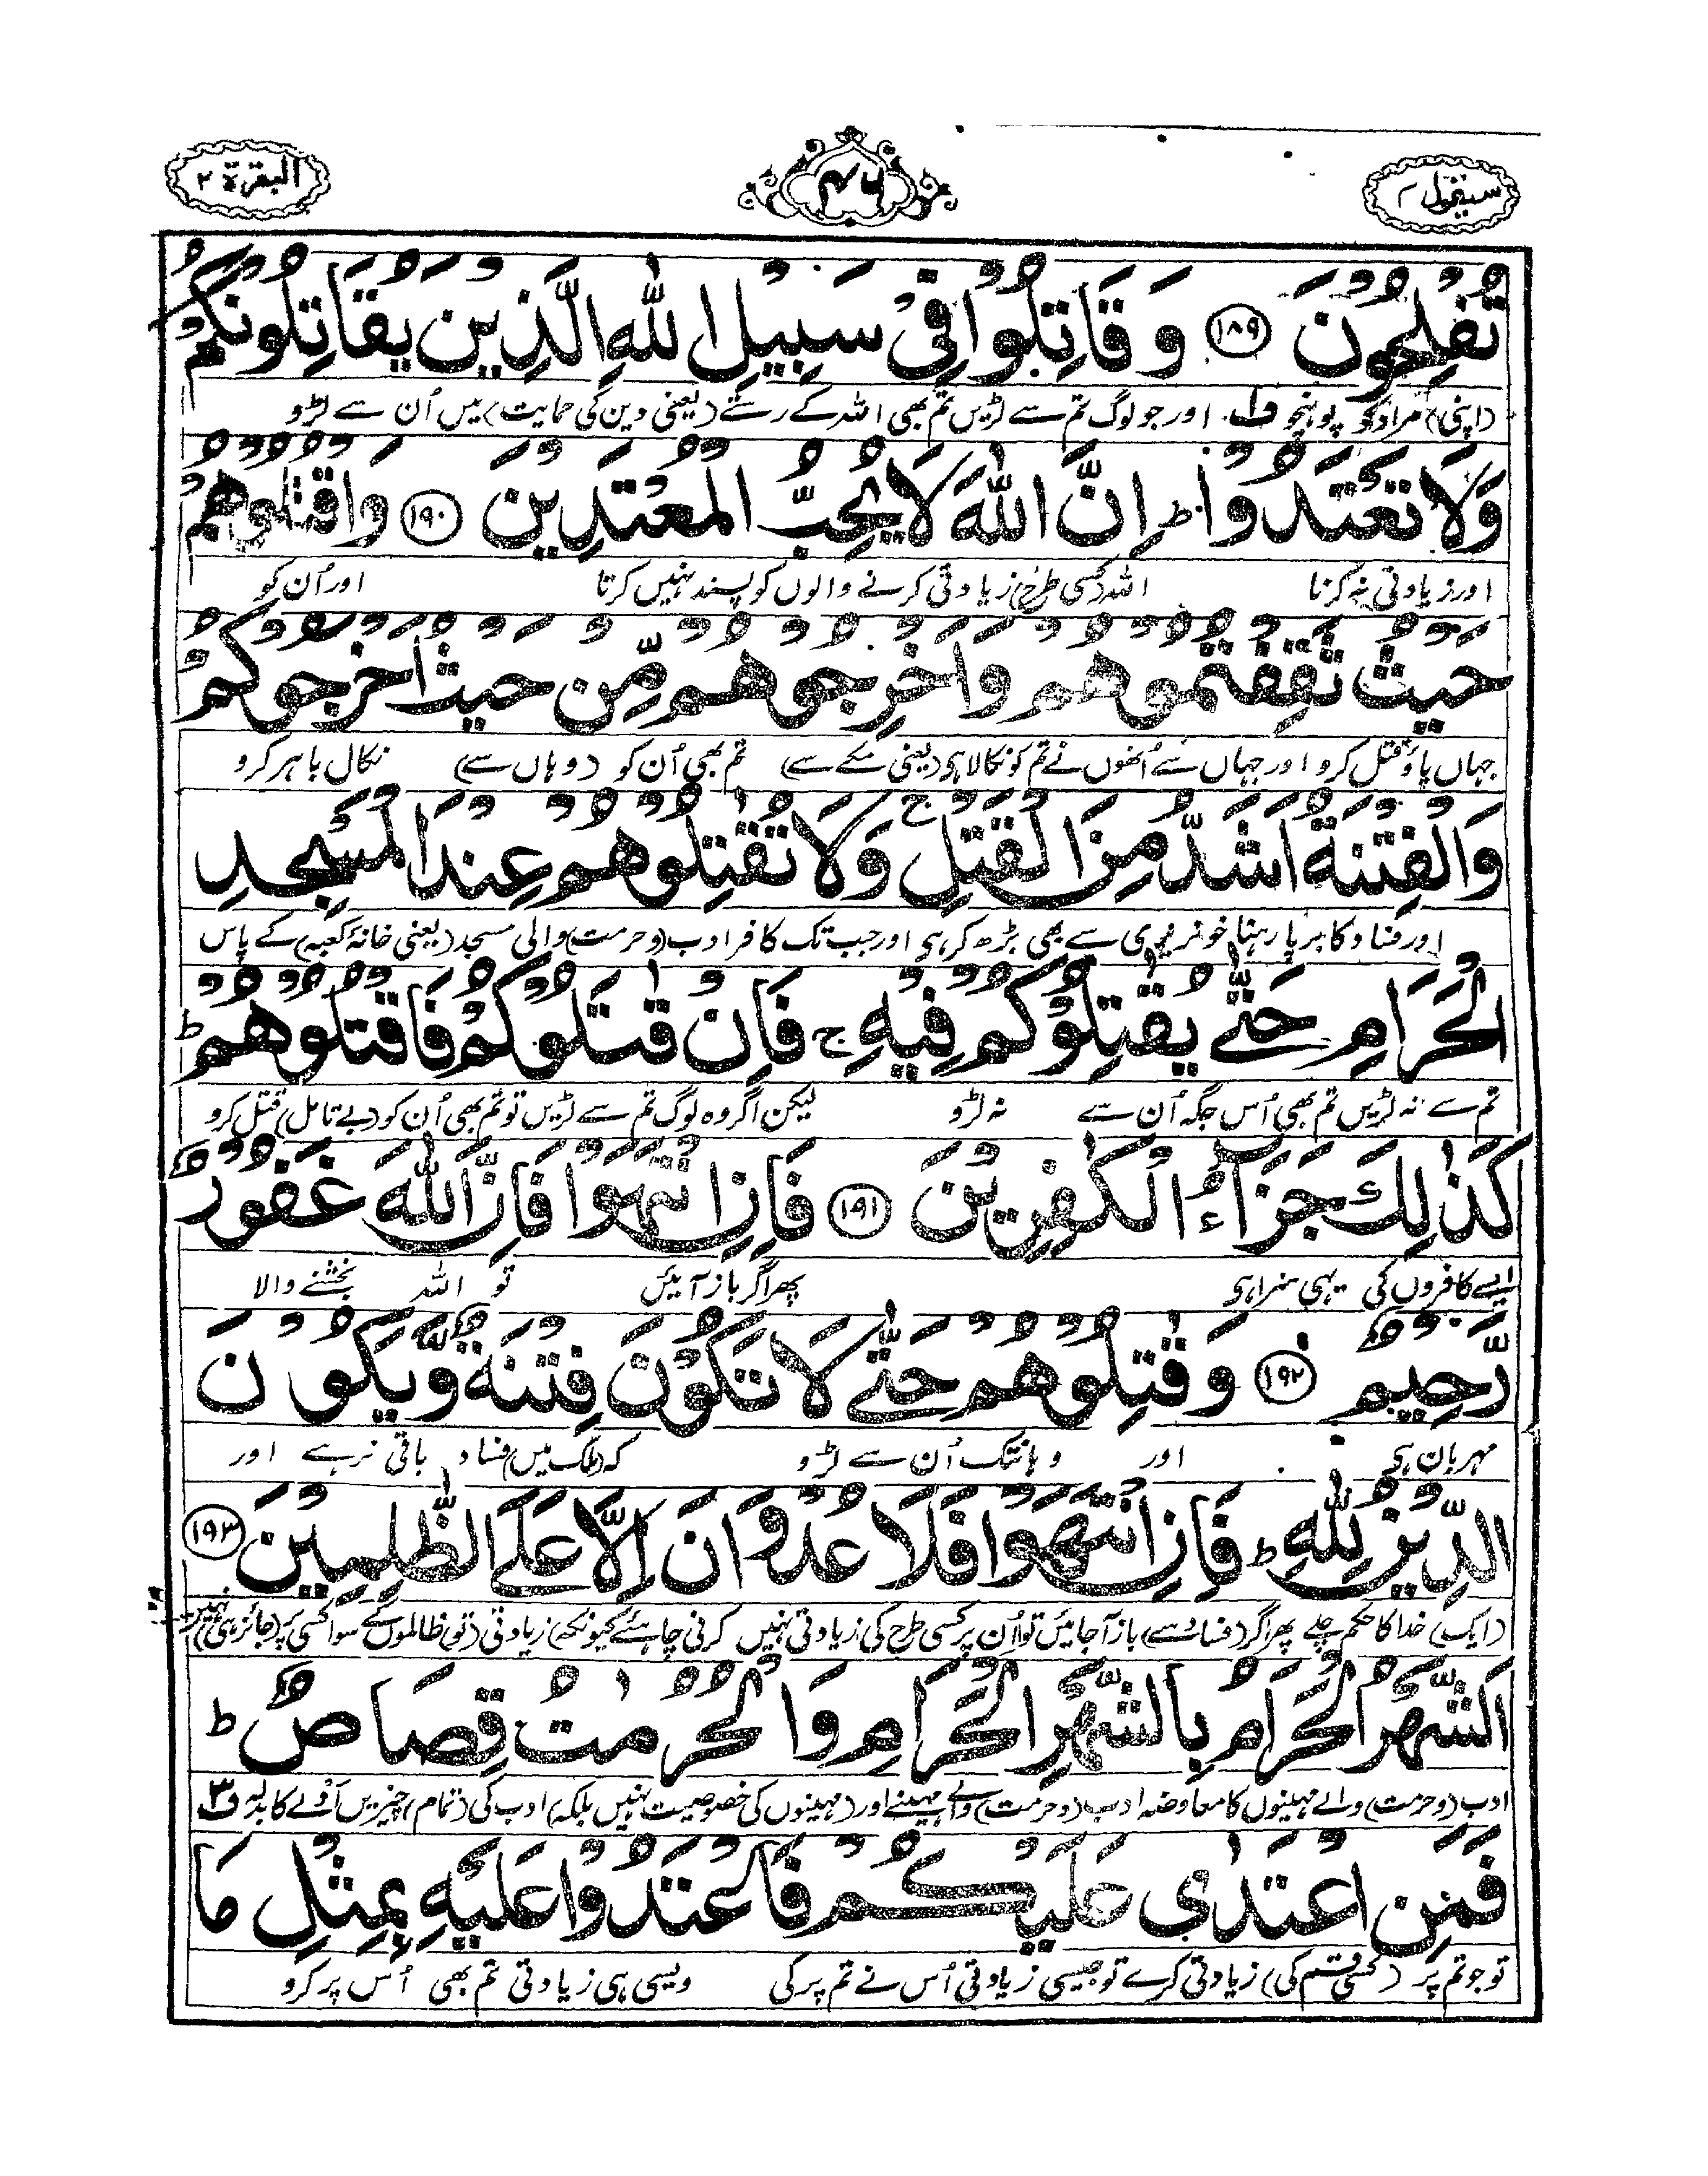 سیقول ۲
۴۶
البقرة ۲
تُفْلِحُوْنَ ﴿۱۸۹﴾ وَ قَاتِلُوْا فِیْ سَبِیْلِ اللّٰهِ الَّذِیْنَ یُقَاتِلُوْنَكُمْ
(اپنی) مراد کو پونہچو ف۱ اور جو لوگ تم سے لڑیں تم بھی اللہ کے رستے (یعنی دین کی حمایت) میں اُن سے لڑو
وَلَا تَعْتَدُوْا ؕ اِنَّ اللّٰهَ لَا یُحِبُّ الْمُعْتَدِیْنَ ﴿۱۹۰﴾ وَاقْتُلُوْهُمْ
اور زیادتی نہ کرنا اللہ (کسی طرح) زیادتی کرنے والوں کو پسند نہیں کرتا اور اُن کو
حَیْثُ ثَقِفْتُمُوْهُمْ وَاَخْرِجُوْهُمْ مِّنْ حَیْثُ اَخْرَجُوْكُمْ
جہاں پاؤ قتل کرو اور جہاں سے اُنھوں نے تم کو نکالا ہی (یعنی مکے سے) تم بھی اُن کو (وہاں سے) نکال باہر کرو
وَالْفِتْنَةُ اَشَدُّ مِنَ الْقَتْلِ ۚ وَلَا تُقٰتِلُوْهُمْ عِنْدَ الْمَسْجِدِ
اور فساد کا برپا رہنا خونریزی سے بھی بڑھ کر ہی اور جب تک کافر ادب (وحرمت) والی مسجد (یعنی خانۂ کعبہ) کے پاس
الْحَرَامِ حَتّٰی یُقٰتِلُوْكُمْ فِیْهِ ۚ فَاِنْ قٰتَلُوْكُمْ فَاقْتُلُوْهُمْ ؕ
تم سے نہ لڑیں تم بھی اُس جگہ اُن سے نہ لڑو لیکن اگر وہ لوگ تم سے لڑیں تو تم بھی اُن کو (بے تامل) قتل کرو
كَذٰلِكَ جَزَآءُ الْكٰفِرِیْنَ ﴿۱۹۱﴾ فَاِنِ انْتَهَوْا فَاِنَّ اللّٰهَ غَفُوْرٌ
ایسے کافروں کی یہی سزا ہی پھر اگر باز آئیں تو اللہ بخشنے والا
رَّحِیْمٌ ﴿۱۹۲﴾ وَ قٰتِلُوْهُمْ حَتّٰی لَا تَكُوْنَ فِتْنَةٌ وَّیَكُوْنَ
مہربان ہی اور وہانتک اُن سے لڑو کہ (ملک میں) فساد باقی نرہے اور
الدِّیْنُ لِلّٰهِ ؕ فَاِنِ انْتَهَوْا فَلَا عُدْوَانَ اِلَّا عَلَی الظّٰلِمِیْنَ ﴿۱۹۳﴾
(ایک) خدا کا حکم چلے پھر اگر (فساد سے) باز آجائیں تو اُن پر کسی طرح کی زیادتی نہیں کرنی چاہئے کیونکہ زیادتی (تو) ظالموں کے سوا کسی پر (جائز ہی) نہیں
اَلشَّهْرُ الْحَرَامُ بِالشَّهْرِ الْحَرَامِ وَالْحُرُمٰتُ قِصَاصٌ ؕ
ادب (وحرمت) والے مہینوں کا معاوضہ ادب (وحرمت) والے مہینے اور (مہینوں کی خصوصیت نہیں بلکہ) ادب کی (تمام) چیزیں اَدلے کا بدلہ ف۳
فَمَنِ اعْتَدٰی عَلَیْكُمْ فَاعْتَدُوْا عَلَیْهِ بِمِثْلِ مَا
تو جو تم پر (کسی قسم کی) زیادتی کرے تو جیسی زیادتی اُس نے تم پر کی ویسی ہی زیادتی تم بھی اُس پر کرو